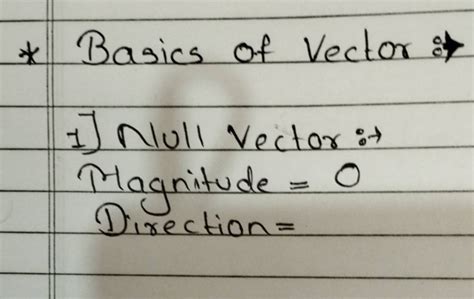 * Basics of Vector :→
1] Null Vector :→
Magnitude = 0
Direction =